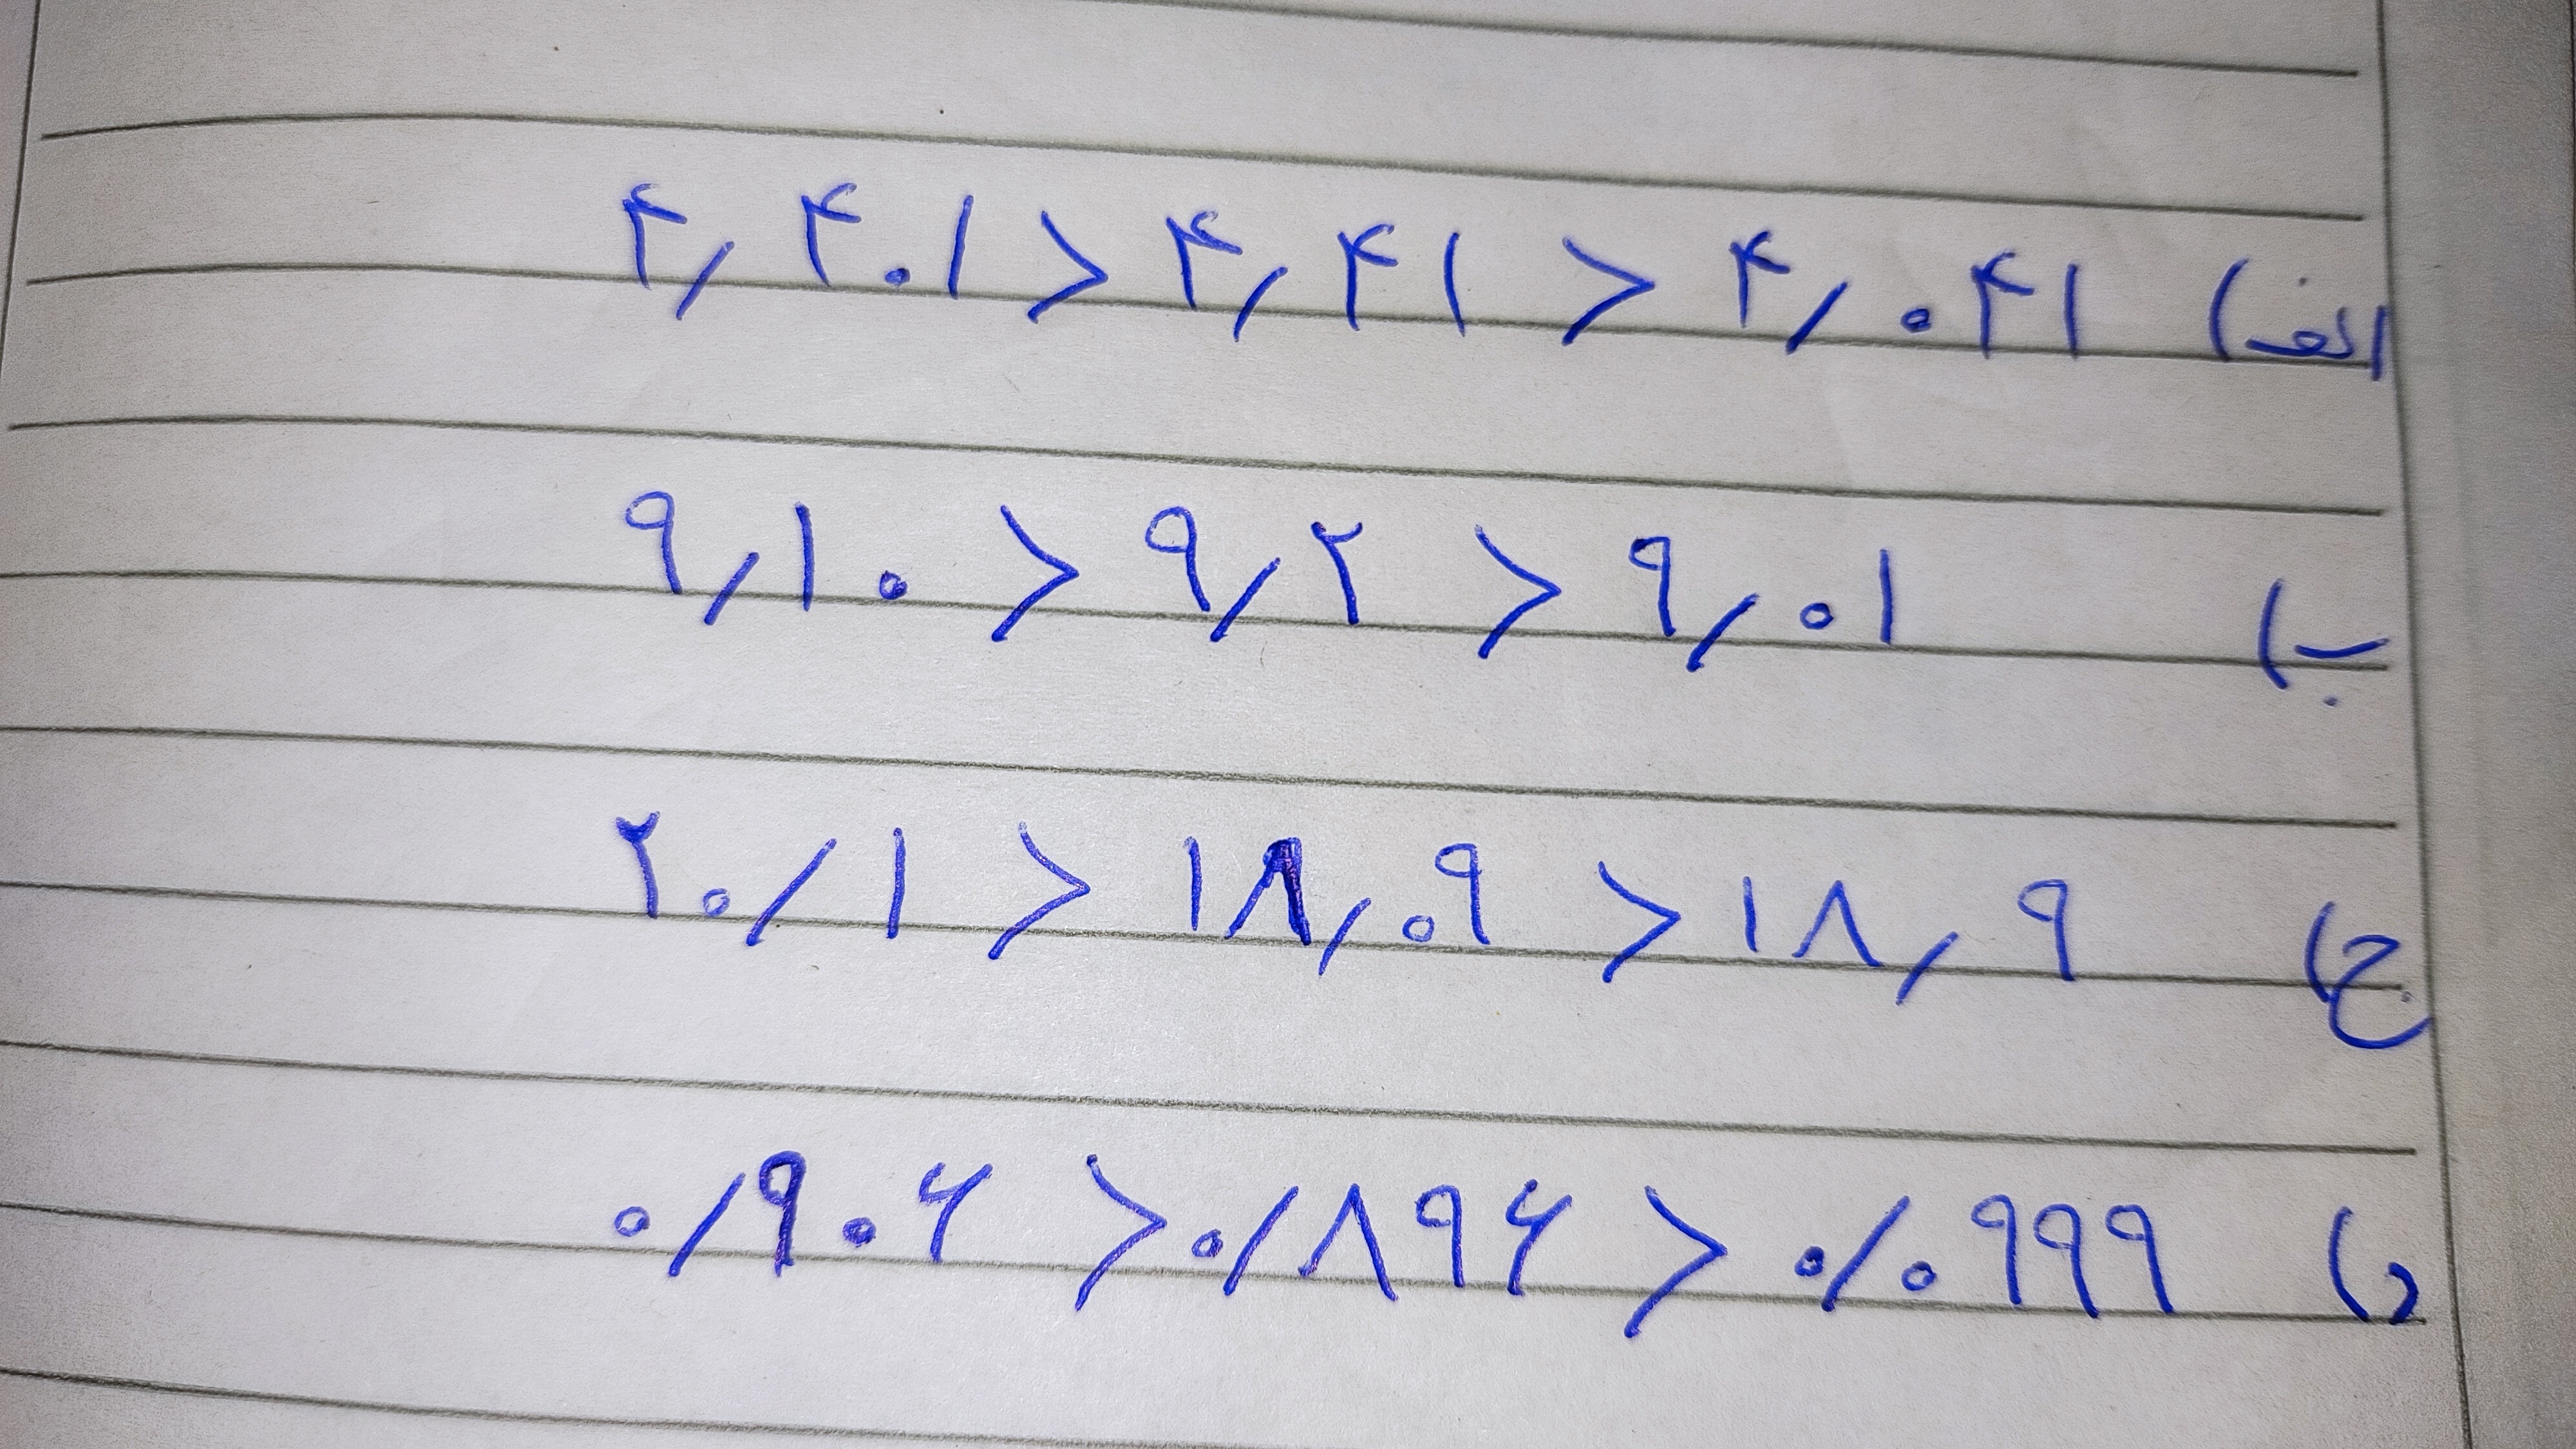 الف) ۴٫۴۰۱ > ۴٫۴۱ > ۴٫۰۴۱
ب) ۹٫۱۰ > ۹٫۲ > ۹٫۰۱
ج) ۲۰٫۱ > ۱۸٫۰۹ > ۱۸٫۹
د) ۰٫۹۰۶ > ۰٫۸۹۶ > ۰٫۰۹۹۹